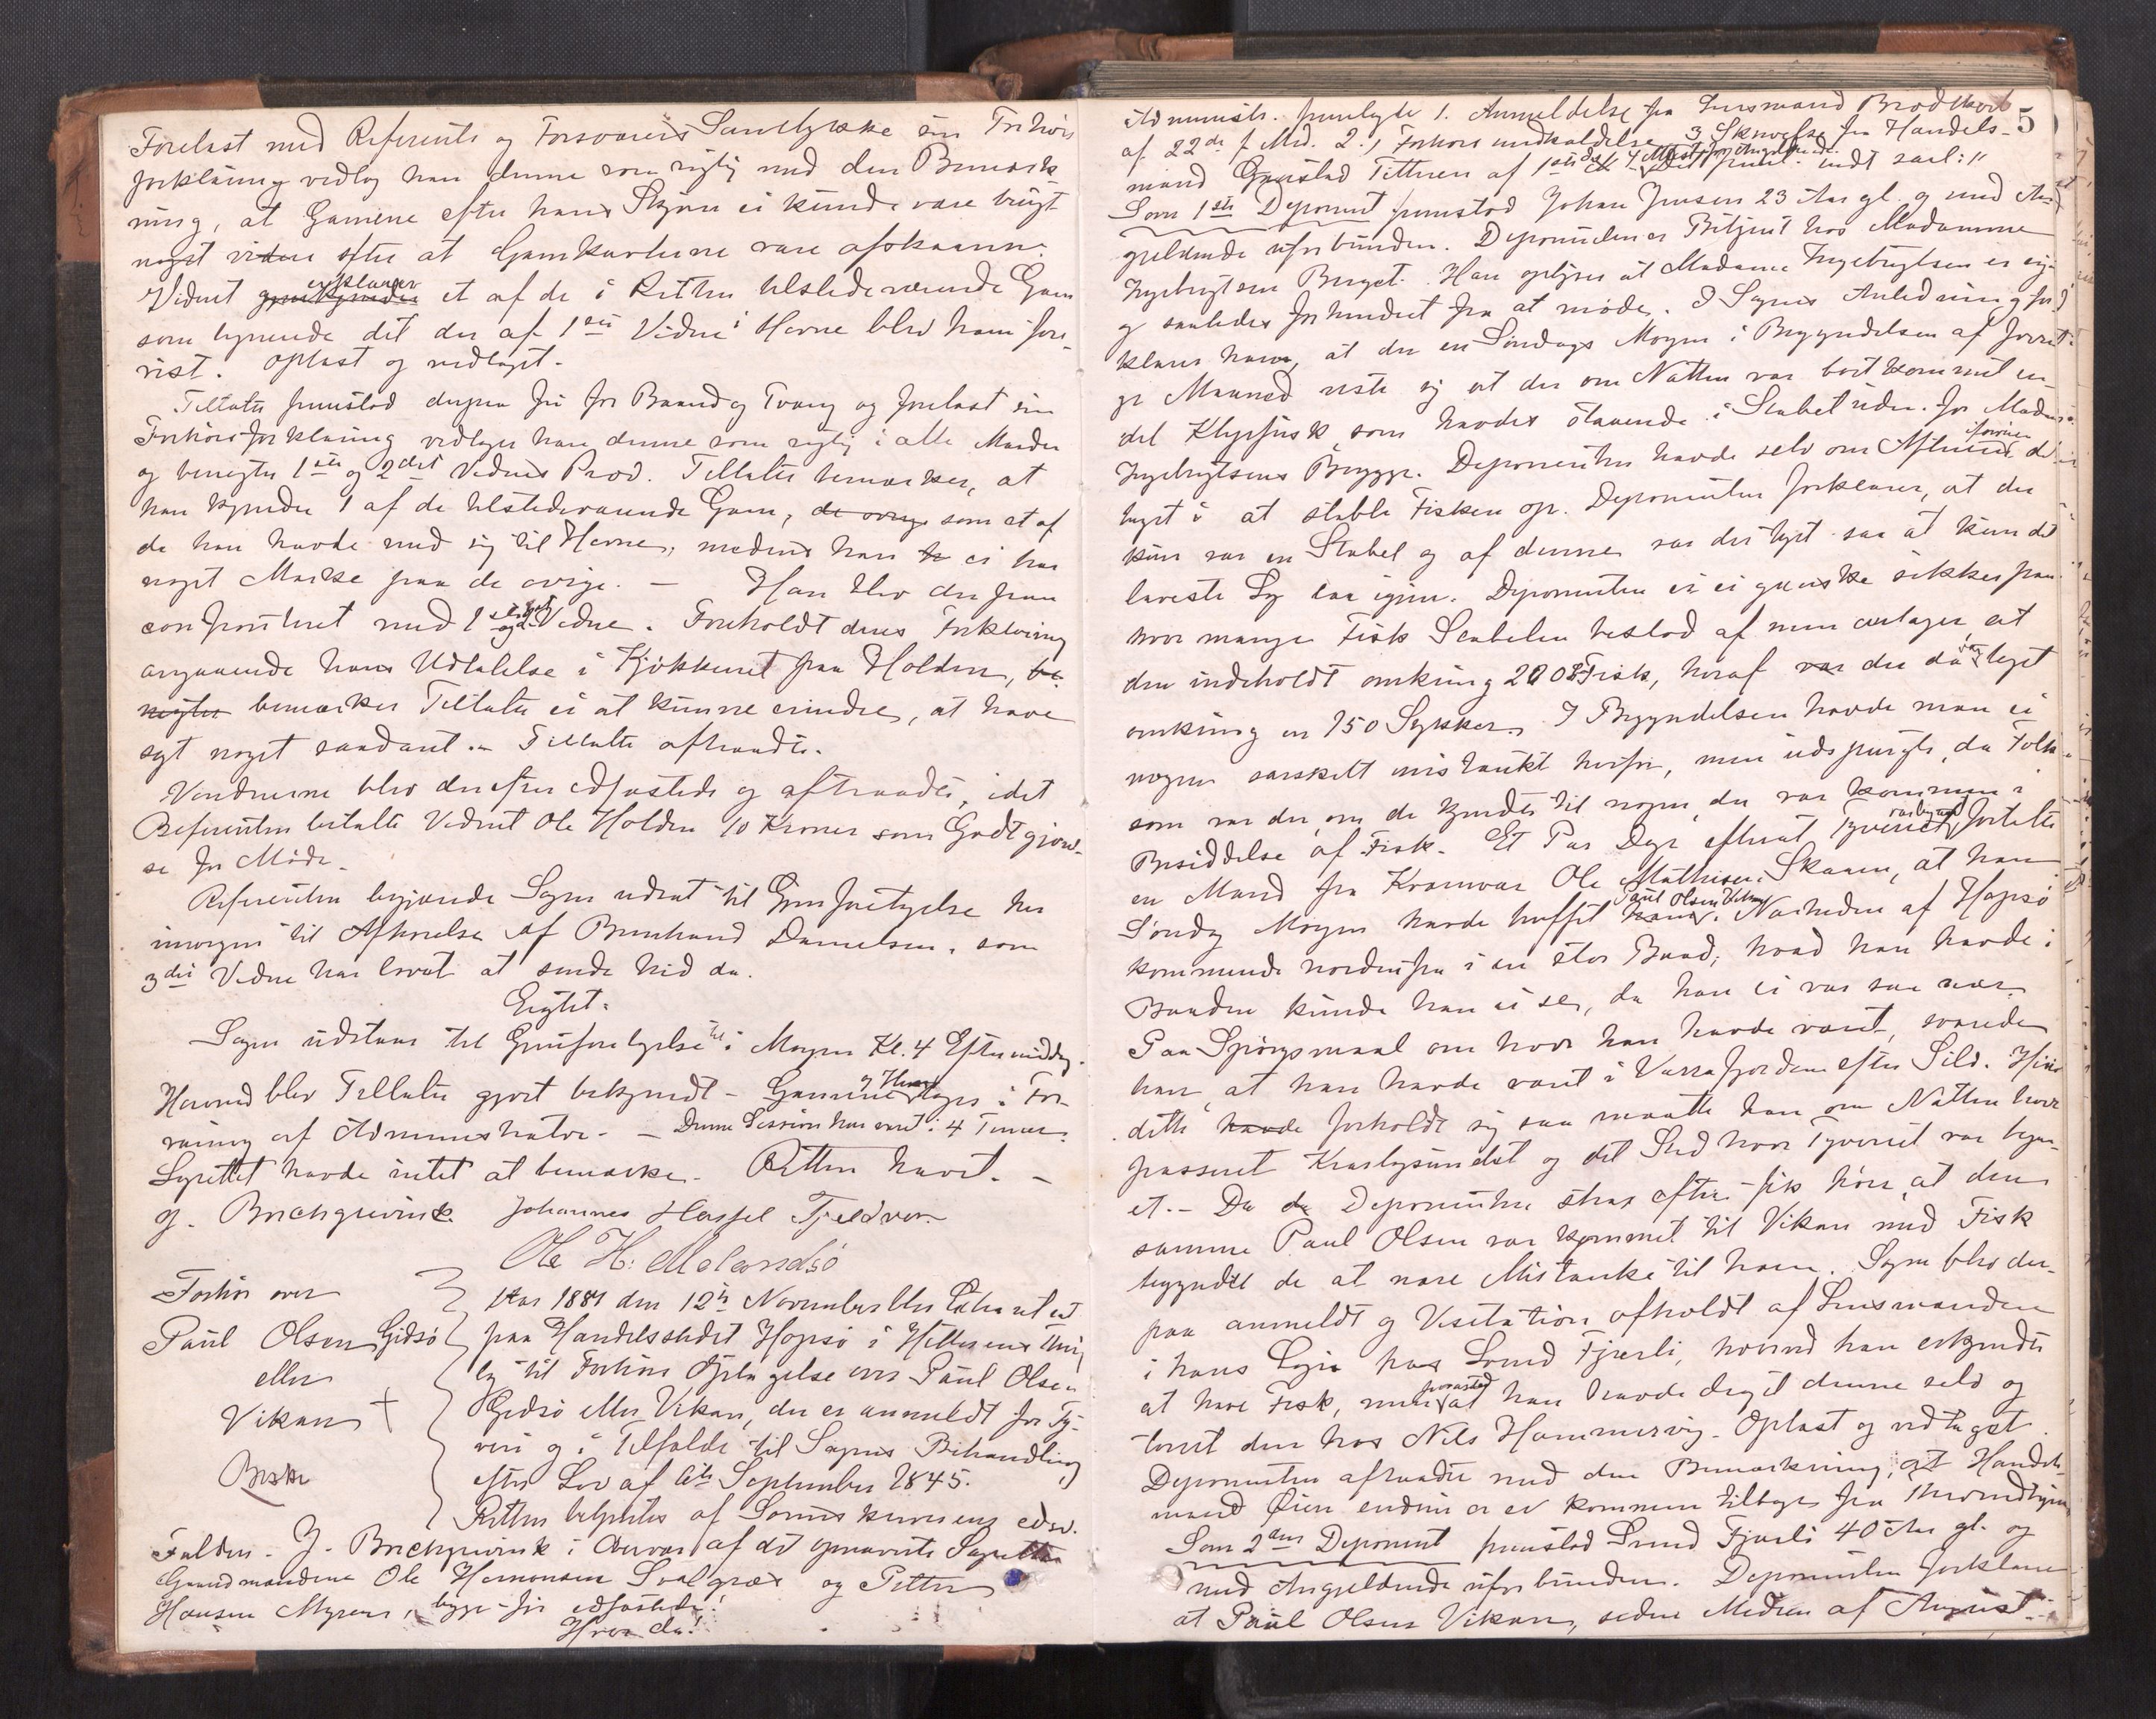 Forelæst med Referents og Forsvarers Samtykke sin Forhørs
forklaring vedtog han denne som rigtig med den Bemærk-
ning, at Garnene efter hans Skjøn ei kunde være brugt
noget videre efter at Garnkavlerne vare afskaarne.
Vidnet gjenkjender erklærer et af de i Retten tilstedeværende Garn
som lignende det der af 1ste Vidne i Hevne blev ham fore-
vist. Oplæst og vedtaget.
Tiltalte fremstod derpaa fri for Baand og Tvang og forelæst sin
Forhørsforklaring vedtager han denne som rigtig i alle Maader
og benegter 1ste og 2det Vidnes Prov. Tiltalte bemærker, at
han kjender 1 af de tilstedeværende Garn, de øvrige som et af
de han havde med sig til Hevne, medens han ei har
noget Mærke paa de øvrige. — Han blev derpaa
confronteret med 1ste og 2det Vidne. Foreholdt deres Forklaring
angaaende hans Udtalelse i Kjøkkenet paa Holden, be-
negter bemærker Tiltalte ei at kunne erindre, at have
sagt noget saadant. — Tiltalte aftraadte.
Vidnerne blev derefter edfæstede og aftraadte, idet
Referenten betalte Vidnet Ole Holden 10 Kroner som Godtgjørel-
se for Møde.
Referenten begjærede Sagen udsat til Gjenforetagelse her
imorgen til Afhørelse af Bernhard Danielsen, som
3die Vidne har lovet at sende hid da.
Eragtet:
Sagen udstaar til Gjenforetagelse til i Morgen Kl. 4 Eftermiddag.
Herved blev Tiltalte gjort bekjendt — Garnene tages i For-
varing af Administrator. — Denne Session har varet i 4 Timer.
Lagrettet havde intet at bemærke. Retten hævet. —
J. Brichgrevink Johannes Hassel Fjeldvær.
Ole H. Melandsø
Forhør over
Paul Olsen Gidsø
eller
Vikan
Beskr
Aar 1881 den 12te November blev Extraret sat
paa Handelsstedet Hopsø i Hitterens Thing
lag til Forhørs Optagelse over Paul Olsen
Gidsø eller Vikan, der er anmeldt for Ty-
veri og i Tilfælde til Sagens Behandling
efter Lov af 6te September 1845.
Retten betjentes af Sorenskriverens edsv.
Fuldm. J. Brichgrevink i Overvær af de opnævnte Lagrettes
Gaardmændene Ole Hemonsen Svalgræs og Petter
Hansen Myren, begge før edfæstede.
Hvor da!
5
Administr. fremlagde 1. Anmeldelse fra Lensmand Brodtkorb
af 22de f. Md. 2.) Forhørs indkaldelse 3 Skrivelse fra Handels-
mand Gaustad Titteren af 1ste ds. Det freml. indt saal: "
Som 1ste Deponent fremstod Johan Jensen 23 Aar gl. og med An-
gjeldende uforbunden. Deponenten er Betjent hos Madamme
Ingebrigtsen Berget. Han oplyser at Madame Ingebrigtsen er syg
og saaledes forhindret fra at møde. I Sagens Anledning for-
klarer han, at der en Søndags Morgen i Begyndelsen af forri-
ge Maaned viste sig at der om Natten var bortkommet en
del Klipfisk, som havdes staaende i Stabel udenfor Madam
Ingebrigtsens Brygge. Deponenten havde selv om Aftenen iforveien del-
taget i at stable Fisken op. Deponenten forklarer, at der
kun var en Stabel og af denne var der taget saa at kun det
laveste Lag laa igjen. Deponenten er ei ganske sikker paa
hvor mange Fisk Stabelen bestod af men antager at
den indeholdt omkring 200 Fisk, heraf var der da taget
omkring en 150 Stykker. I Begyndelsen havde man ei
nogen særskilt mistænkt herfor, men udspurgte da Folk
som var der, om de kjendte til nogen, der var kommen i
Besiddelse af Fisk. Et Par Dage efterat Tyveriet var begaaet fortalte
en Mand fra Kramvær Ole Mathisen Skaren, at han
Søndag Morgen havde truffet ham Paul Olsen Vikan i Nærheden af Hopsø
kommende nordenfra i en stor Baad; hvad han havde i
Baaden kunde han ei se, da han ei var saa nær.
Paa Spørgsmaal om hvor han havde været, svarede
han, at han havde været i Værrafjorden efter Sild. Hvis
dette havde forholdt sig saa maatte han om Natten have
passeret Knarlagsundet og det Sted hvor Tyveriet var begaa-
et. — Da de Deponenten strax efter fik høre, at den-
samme Paul Olsen var kommet til Vikan med Fisk
begyndte de at nære Mistanke til ham. Sagen blev der-
paa anmeldt og Visitation afholdt af Lensmanden
i hans Logi hos Svend Fjærli, hvorved han erkjendte
at have Fisk, men paastod at han havde draget denne selv og
tørret den hos Nils Hammervig. Oplæst og vedtaget.
Deponenten aftraadte med den Bemærkning, at Handels-
mand Øien endnu er ei kommen tilbage fra Throndhjem.
Som 2den Deponent fremstod Svend Fjærli 40 Aar gl. og
med Angjeldende uforbunden. Deponenten forklarer
at Paul Olsen Vikan, siden Medien af August